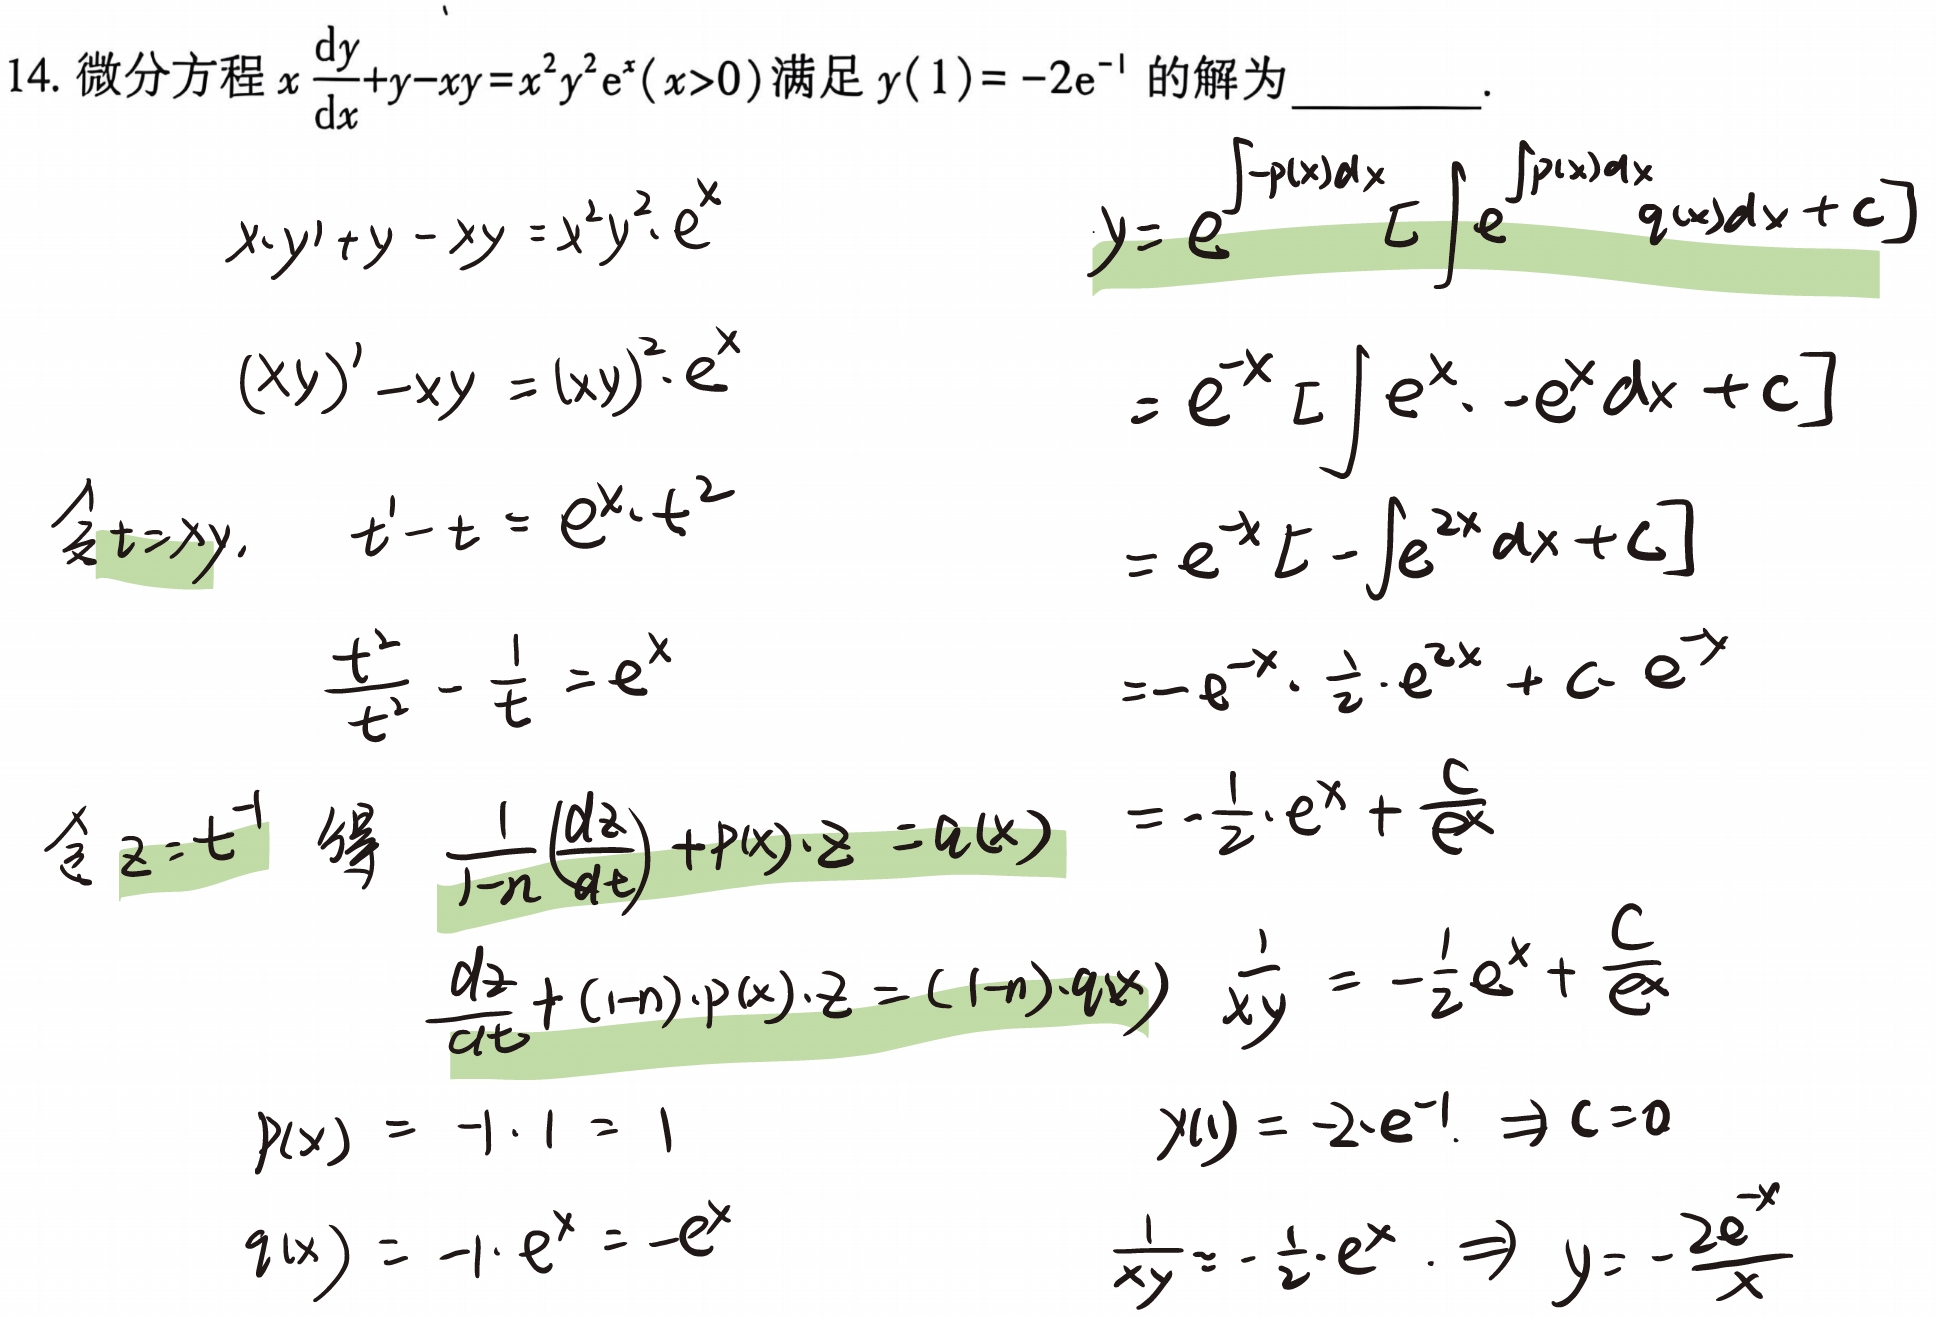 14. 微分方程 x dy/dx+y-xy=x²y²eˣ(x>0)满足 y(1)=-2e⁻¹ 的解为________.
x·y'+y-xy=x²y²·eˣ
(xy)'-xy=(xy)²·eˣ
令t=xy, t'-t=eˣ·t²
t²/t² - 1/t = eˣ
令 z=t⁻¹ 得 1/(1-n) (dz/dt) + P(x)·z = q(x)
dz/dt + (1-n)·p(x)·z = (1-n)·q(x)
p(x) = -1·1 = 1
q(x) = -1·eˣ = -eˣ
y= e^∫-p(x)dx [∫e^∫p(x)dx q(x)dx+c]
= e⁻ˣ[∫eˣ·-eˣdx+c]
= e⁻ˣ[-∫e²ˣdx+c]
=-e⁻ˣ·1/2·e²ˣ+c·e⁻ˣ
=-1/2·eˣ+c/eˣ
1/xy = -1/2eˣ+C/eˣ
y(1) = -2·e⁻¹. ⇒ c=0
1/xy = -1/2·eˣ. ⇒ y= -2e⁻ˣ/x